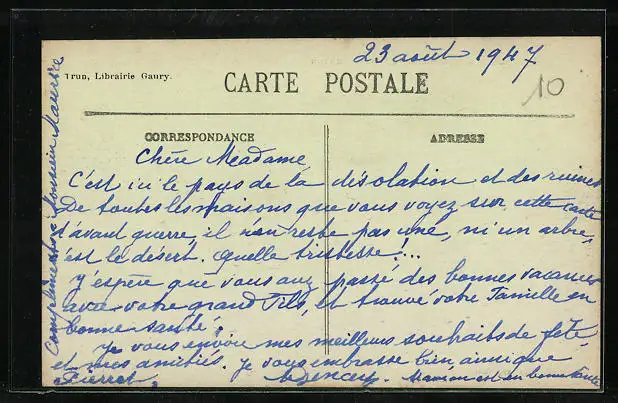 23 août 1947
Trun, Librairie Gaury.
CARTE POSTALE
10
CORRESPONDANCE
ADRESSE
Chère Meadame
C'est ici le pays de la désolation et des ruines
De toutes les maisons que vous voyez sur cette carte
d'avant guerre, il n'en reste pas une, ni un arbre,
c'est le désert. Quelle tristesse!...
J'espère que vous avez passé des bonnes vacances
avec votre grand Fils, et trouvé votre Famille en
bonne santé.
Je vous envoie mes meilleurs souhaits de fête
et mes amitiés. Je vous embrasse bien
Pierret. Maman est en bonne santé
Compliments à Monsieur Maurice